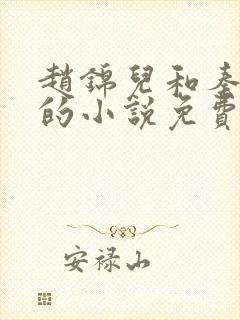 趙錦兒和秦
的小說免費
安禄山